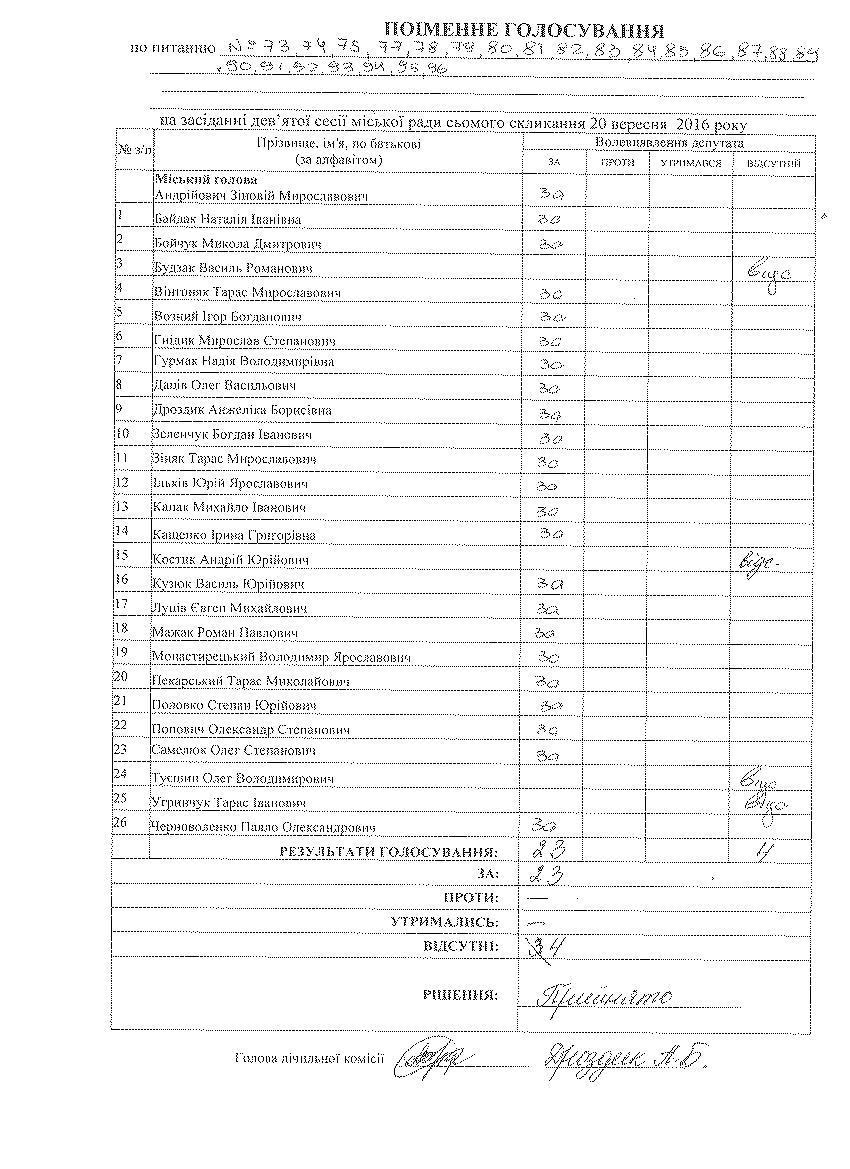 ПОІМЕННЕ ГОЛОСУВАННЯ
по питанню № 73, 74, 75, 77, 78, 79, 80, 81 82, 83, 84, 85, 86, 87, 88, 89
90, 91, 92, 93, 94, 95, 96
на засіданні дев'ятої сесії міської ради сьомого скликання 20 вересня 2016 року
№ з/п Прізвище, ім'я, по батькові (за алфавітом) Волевиявлення депутата
ЗА ПРОТИ УТРИМАВСЯ ВІДСУТНІЙ
Міський голова
Андрійович Зіновій Мирославович за
1 Байдак Наталія Іванівна за
2 Бойчук Микола Дмитрович за
3 Будзак Василь Романович відс
4 Вінтоняк Тарас Мирославович за
5 Возний Ігор Богданович за
6 Гнідик Мирослав Степанович за
7 Гурмак Надія Володимирівна за
8 Даців Олег Васильович за
9 Дроздик Анжеліка Борисівна за
10 Зеленчук Богдан Іванович за
11 Зіняк Тарас Мирославович за
12 Ільків Юрій Ярославович за
13 Капак Михайло Іванович за
14 Кащенко Ірина Григорівна за
15 Костик Андрій Юрійович відс.
16 Кузюк Василь Юрійович за
17 Луців Євген Михайлович за
18 Мажак Роман Павлович за
19 Монастирецький Володимир Ярославович за
20 Пекарський Тарас Миколайович за
21 Половко Степан Юрійович за
22 Попович Олександр Степанович за
23 Самелюк Олег Степанович за
24 Олег Володимирович відс
25 Угринчук Тарас Іванович відс
26 Черноволенко Павло Олександрович за
РЕЗУЛЬТАТИ ГОЛОСУВАННЯ: 23 4
ЗА: 23
ПРОТИ: —
УТРИМАЛИСЬ: —
ВІДСУТНІ: 4
РІШЕННЯ: Прийнято
Голова лічильної комісії Дроздик А.Б.